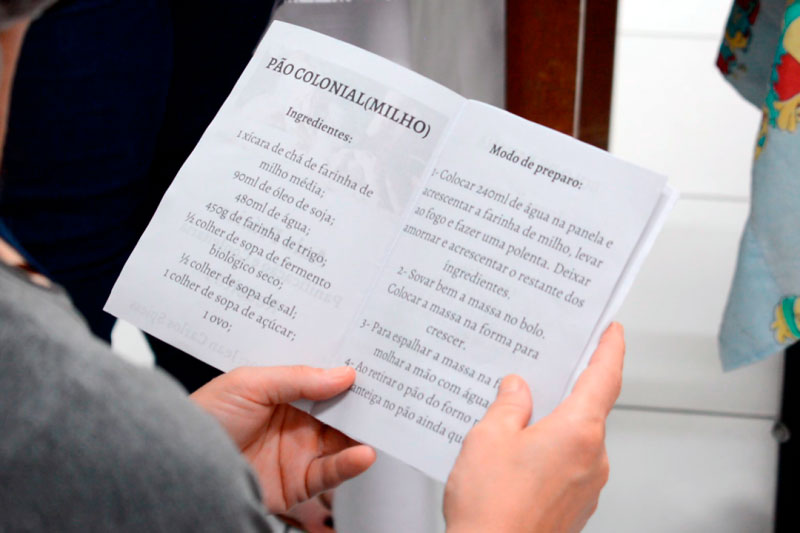 PÃO COLONIAL(MILHO)
Ingredientes:
1 xícara de chá de farinha de
milho média;
90ml de óleo de soja;
480ml de água;
450g de farinha de trigo;
½ colher de sopa de fermento
biológico seco;
½ colher de sopa de sal;
1 colher de sopa de açúcar;
1 ovo;
Modo de preparo:
1- Colocar 240ml de água na panela e
acrescentar a farinha de milho, levar
ao fogo e fazer uma polenta. Deixar
amornar e acrescentar o restante dos
ingredientes.
2- Sovar bem a massa no bolo.
Colocar a massa na forma para
crescer.
3- Para espalhar a massa na
molhar a mão com água
4- Ao retirar o pão do forno
manteiga no pão ainda